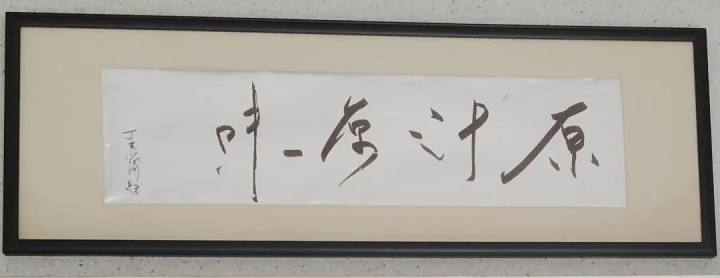 原汁原味